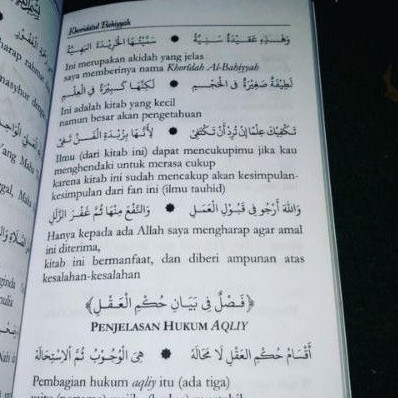 Khoridatul Bahiyyah
وَهٰذِهِ عَقِيْدَةٌ سَنِيَّةٌ ✸ سَمَّيْتُهَا الْخَرِيْدَةَ الْبَهِيَّةَ
Ini merupakan akidah yang jelas
saya memberinya nama Khorîdah Al-Bahiyyah
لَطِيْفَةٌ صَغِيْرَةٌ فِى الْحَجْمِ ✸ لٰكِنَّهَا كَبِيْرَةٌ فِى الْعِلْمِ
Ini adalah kitab yang kecil
namun besar akan pengetahuan
تَكْفِيْكَ عِلْمًا إِنْ تُرِدْ أَنْ تَكْتَفِيْ ✸ لِأَنَّهَا بِزُبْدَةِ الْفَنِّ تَفِيْ
Ilmu (dari kitab ini) dapat mencukupimu jika kau
menghendaki untuk merasa cukup
karena kitab ini sudah mencakup akan kesimpulan-
kesimpulan dari fan ini (ilmu tauhid)
وَاللّٰهَ أَرْجُو فِى قَبُوْلِ الْعَمَلِ ✸ وَالنَّفْعَ مِنْهَا ثُمَّ غَفْرَ الزَّلَلِ
Hanya kepada ada Allah saya mengharap agar amal
ini diterima,
kitab ini bermanfaat, dan diberi ampunan atas
kesalahan-kesalahan
﴿فَصْلٌ فِى بَيَانِ حُكْمِ الْعَقْلِ﴾
PENJELASAN HUKUM AQLIY
أَقْسَامُ حُكْمِ الْعَقْلِ لَا مَحَالَةْ ✸ هِيَ الْوُجُوْبُ ثُمَّ الْاِسْتِحَالَةْ
Pembagian hukum aqliy itu (ada tiga)